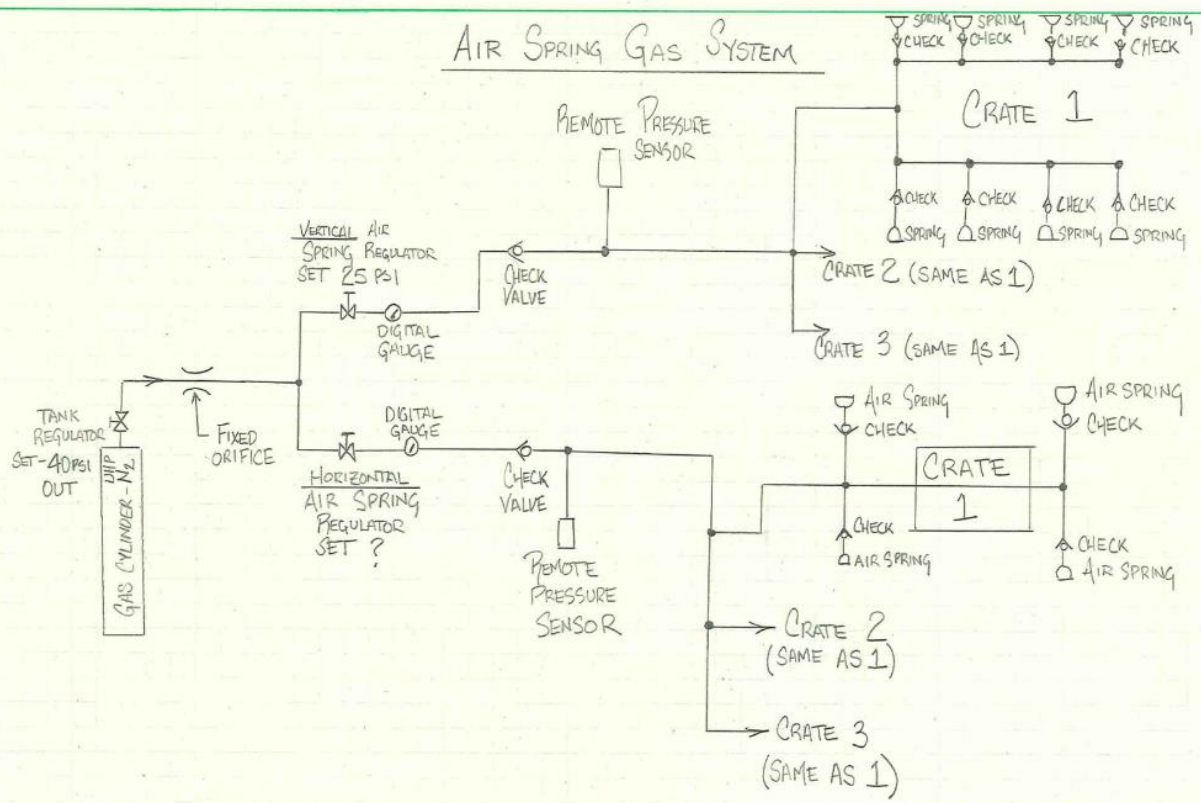 AIR SPRING GAS SYSTEM
SPRING SPRING SPRING SPRING
CHECK CHECK CHECK CHECK
CRATE 1
CHECK CHECK CHECK CHECK
SPRING SPRING SPRING SPRING
REMOTE PRESSURE
SENSOR
VERTICAL AIR
SPRING REGULATOR
SET 25 PSI
DIGITAL
GAUGE
CHECK
VALVE
CRATE 2 (SAME AS 1)
CRATE 3 (SAME AS 1)
TANK
REGULATOR
SET-40PSI
OUT
GAS CYLINDER-N2
FIXED
ORIFICE
DIGITAL
GAUGE
HORIZONTAL
AIR SPRING
REGULATOR
SET ?
CHECK
VALVE
REMOTE
PRESSURE
SENSOR
AIR SPRING
CHECK
AIR SPRING
CHECK
CRATE
1
CHECK
AIR SPRING
CHECK
AIR SPRING
CRATE 2
(SAME AS 1)
CRATE 3
(SAME AS 1)